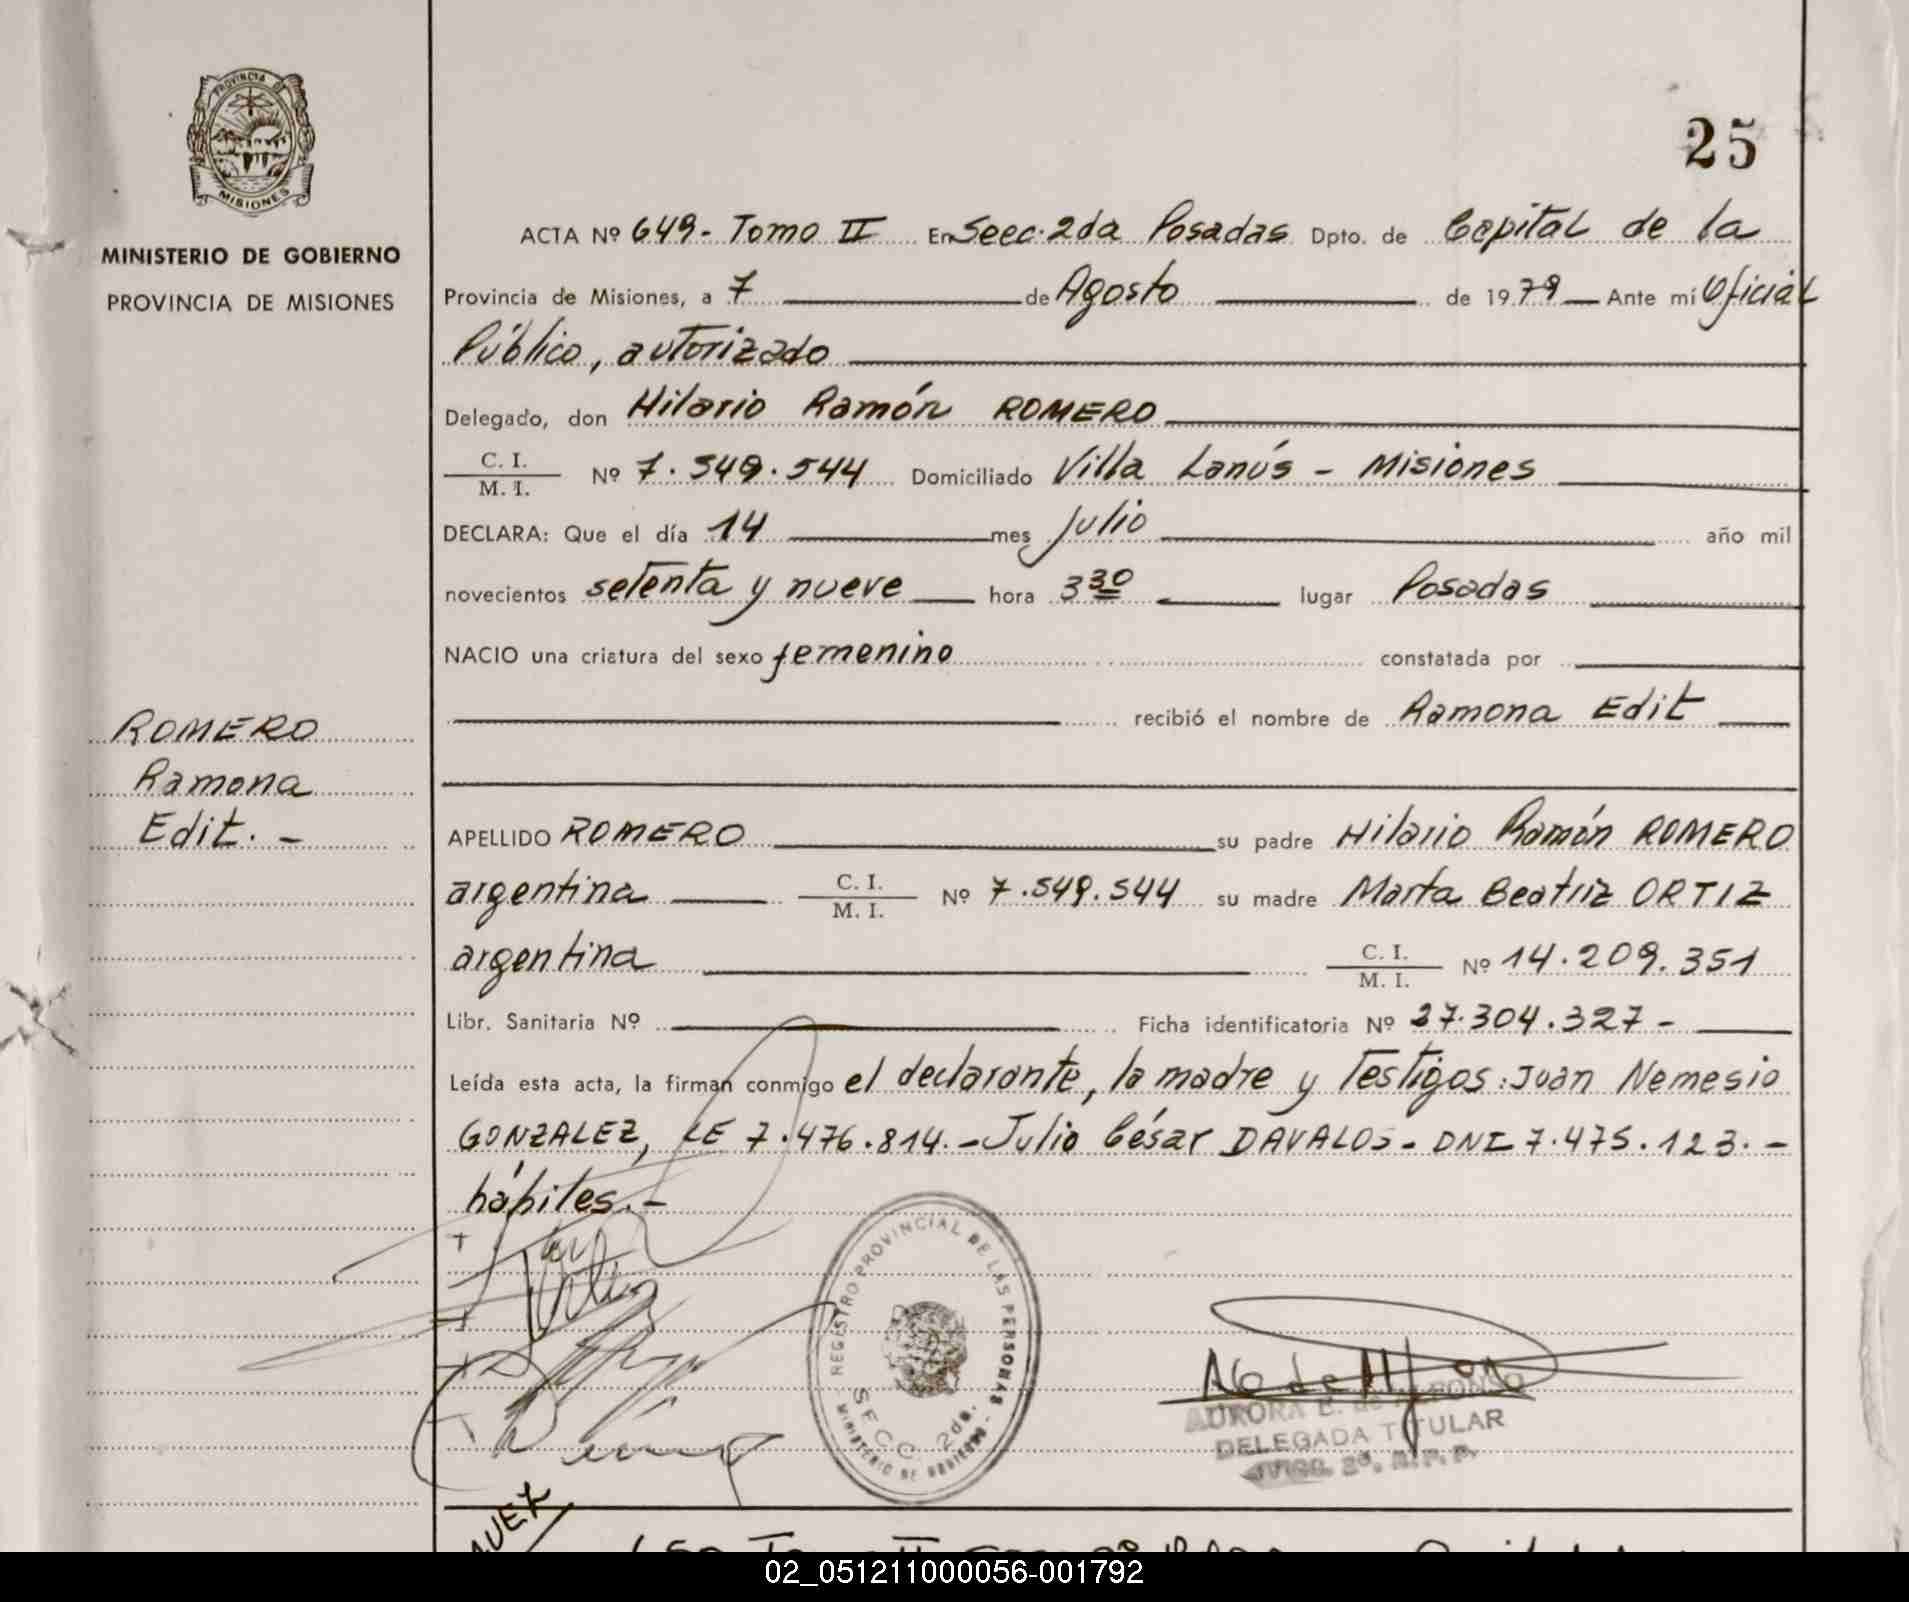 25
PROVINCIA DE
MISIONES
MINISTERIO DE GOBIERNO
PROVINCIA DE MISIONES
ACTA Nº 649.- Tomo II En Secc. 2da Posadas Dpto. de Capital de la
Provincia de Misiones, a 7 de Agosto de 1979 Ante mí Oficial
Público, autorizado
Delegado, don Hilario Ramón ROMERO
C. I.
M. I. Nº 7.549.544 Domiciliado Villa Lanús - Misiones
DECLARA: Que el día 14 mes Julio año mil
novecientos setenta y nueve hora 3 30 lugar Posadas
NACIO una criatura del sexo femenino constatada por
recibió el nombre de Ramona Edit
ROMERO
Ramona
Edit. -
APELLIDO ROMERO su padre Hilario Ramón ROMERO
argentina C. I. M. I. Nº 7.549.544 su madre Marta Beatriz ORTIZ
argentina C. I. M. I. Nº 14.209.351
Libr. Sanitaria Nº Ficha identificatoria Nº 27.304.327 -
Leída esta acta, la firman conmigo el declarante, la madre y Testigos: Juan Nemesio
GONZALEZ, LE 7.476.814.- Julio César DAVALOS - DNI 7.475.123. -
hábiles. -
REGISTRO PROVINCIAL DE LAS PERSONAS -
SECC. 2da.
MINISTERIO DE GOBIERNO
AURORA E. de ALFONSO
DELEGADA TITULAR
02_051211000056-001792